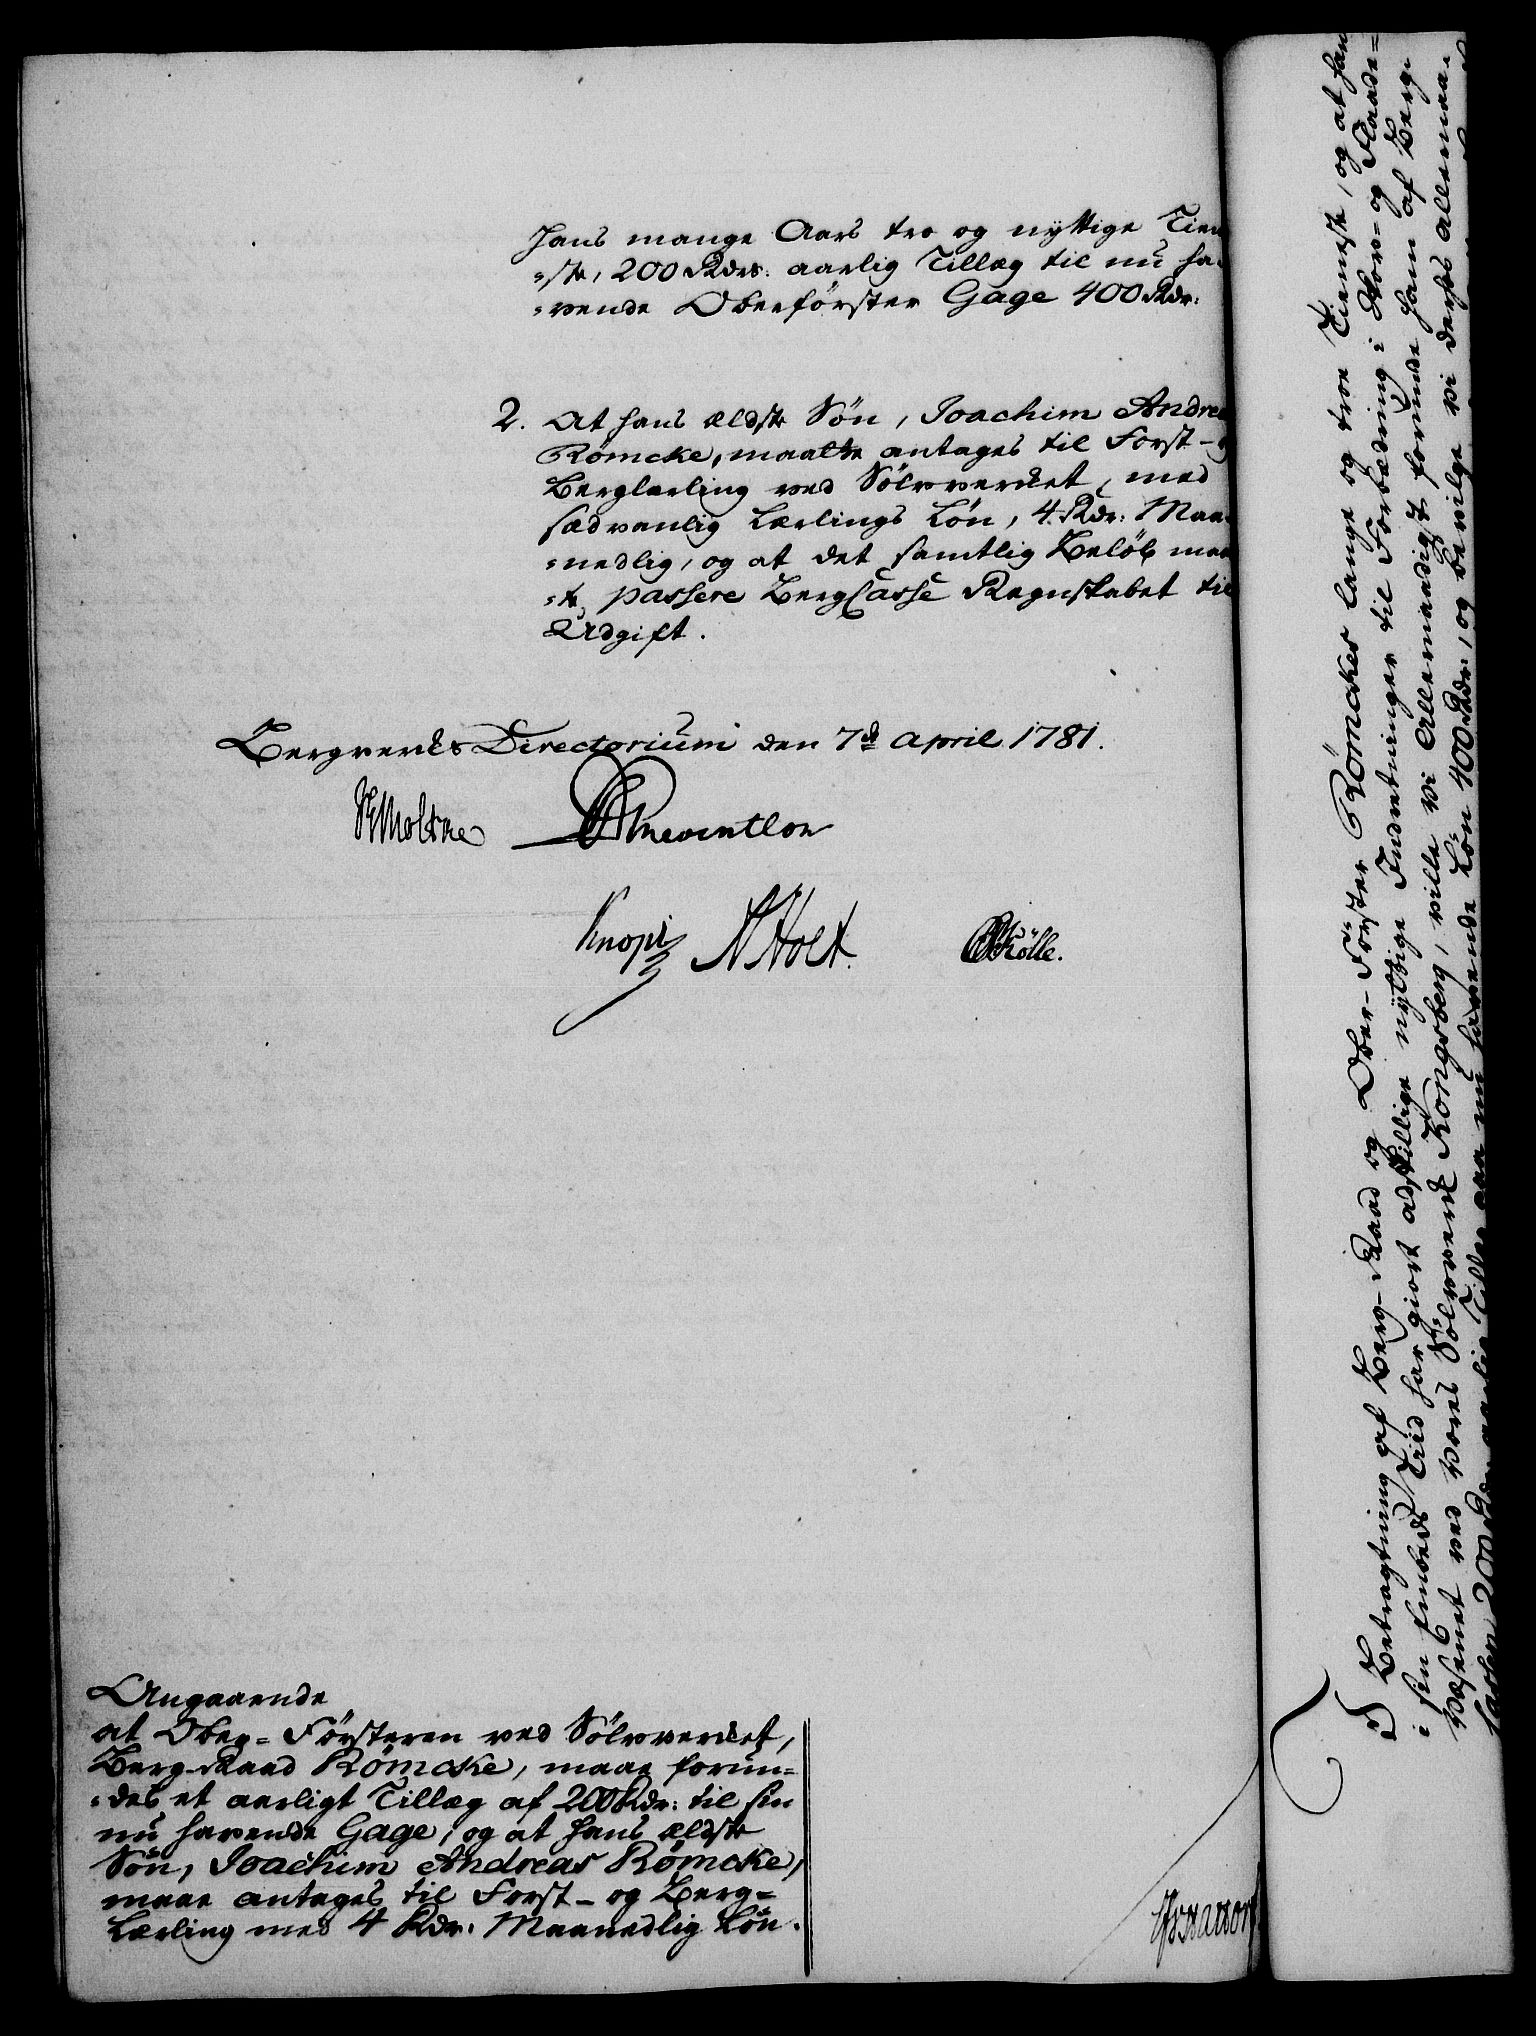 hans mange Aars tro og nyttige Tien
=ste, 200 Rdrs: aarlig Tillæg til nu ha-
=vende Oberförster Gage 400 Rdr:
2. At hans ældste Sön, Joachim Andrea
Römcke, maatte antages til Forst-
Berglærling ved Sölvverket, med
sædvanlig Lærlings Lön, 4. Rdr: Maa-
=nedlig, og at det samtlig Belöb maa
=te passere BergCasse Regnskabet til
Udgift.
Bergverks Directorium den 7de April 1781.
Moltke Reventlow
Knopf Holt Rölle.
Angaaende
at Ober-Försteren ved Sölvverket,
Berg-Raad Römcke, maae forun=
=des et aarligt Tillæg af 200 Rdr: til sin
nu havende Gage, og at hans ældste
Sön, Joachim Andreas Römcke,
maae antages til Forst- og Berg=
Lærling med 4 Rdr: Maanedlig Lön.
I Betragtning af Berg-Raad og Ober-Förster Römckes lange og troe Tieneste, og at han
i sin Embeds Tiid har giort adskillige nyttige Indretninger til Forbedring i Skov- og Flaade=
Væsenet ved Vores Sölvverk Kongsberg, ville Vi Allernaadigst forunde ham af Berg-
Cassen 200 Rdr: aarlig Tillæg paa nu havende Lön 400 Rdr:, og bevilge Vi derhos allernaa-